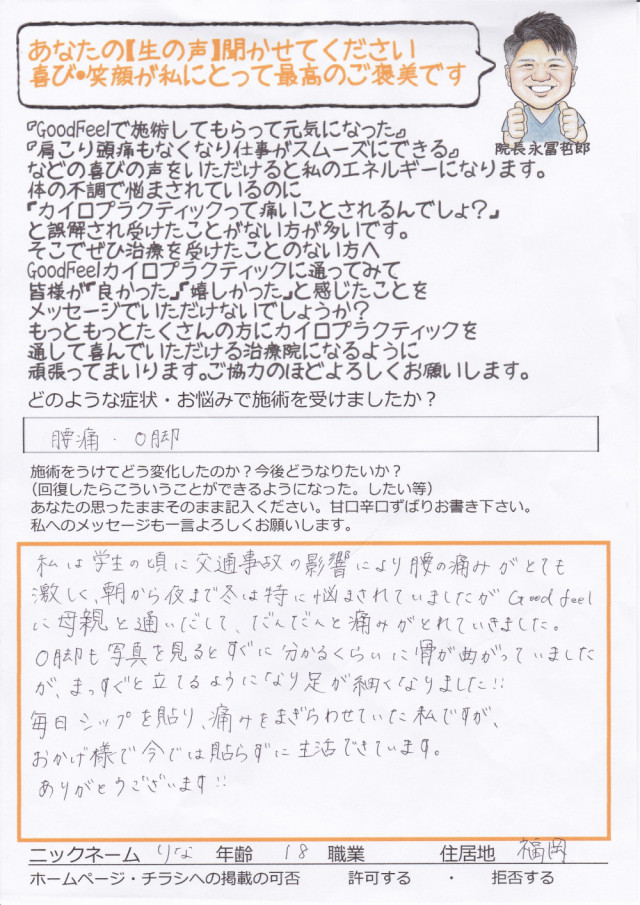 あなたの【生の声】聞かせてください
喜び•笑顔が私にとって最高のご褒美です
院長永冨哲郎
『GoodFeelで施術してもらって元気になった』
『肩こり頭痛もなくなり仕事がスムーズにできる』
などの喜びの声をいただけると私のエネルギーになります。
体の不調で悩まされているのに
『カイロプラクティックって痛いことされるんでしょ?』
と誤解され受けたことがない方が多いです。
そこでぜひ治療を受けたことのない方へ
GoodFeelカイロプラクティックに通ってみて
皆様が『良かった』『嬉しかった』と感じたことを
メッセージでいただけないでしょうか?
もっともっとたくさんの方にカイロプラクティックを
通して喜んでいただける治療院になるように
頑張ってまいります。ご協力のほどよろしくお願いします。
どのような症状・お悩みで施術を受けましたか?
腰痛・O脚
施術をうけてどう変化したのか?今後どうなりたいか?
(回復したらこういうことができるようになった。したい等)
あなたの思ったままそのまま記入ください。甘口辛口ずばりお書き下さい。
私へのメッセージも一言よろしくお願いします。
私は学生の頃に交通事故の影響により腰の痛みがとても
激しく、朝から夜まで冬は特に悩まされていましたがGood feel
に母親と通いだして、だんだんと痛みがとれていきました。
O脚も写真を見るとすぐに分かるくらいに骨が曲がっていました
が、まっすぐと立てるようになり足が細くなりました!!
毎日シップを貼り、痛みをまぎらわせていた私ですが、
おかげ様で今では貼らずに生活できています。
ありがとうございます!!
ニックネーム りな 年齢 18 職業 住居地 福岡
ホームページ・チラシへの掲載の可否 許可する ・ 拒否する